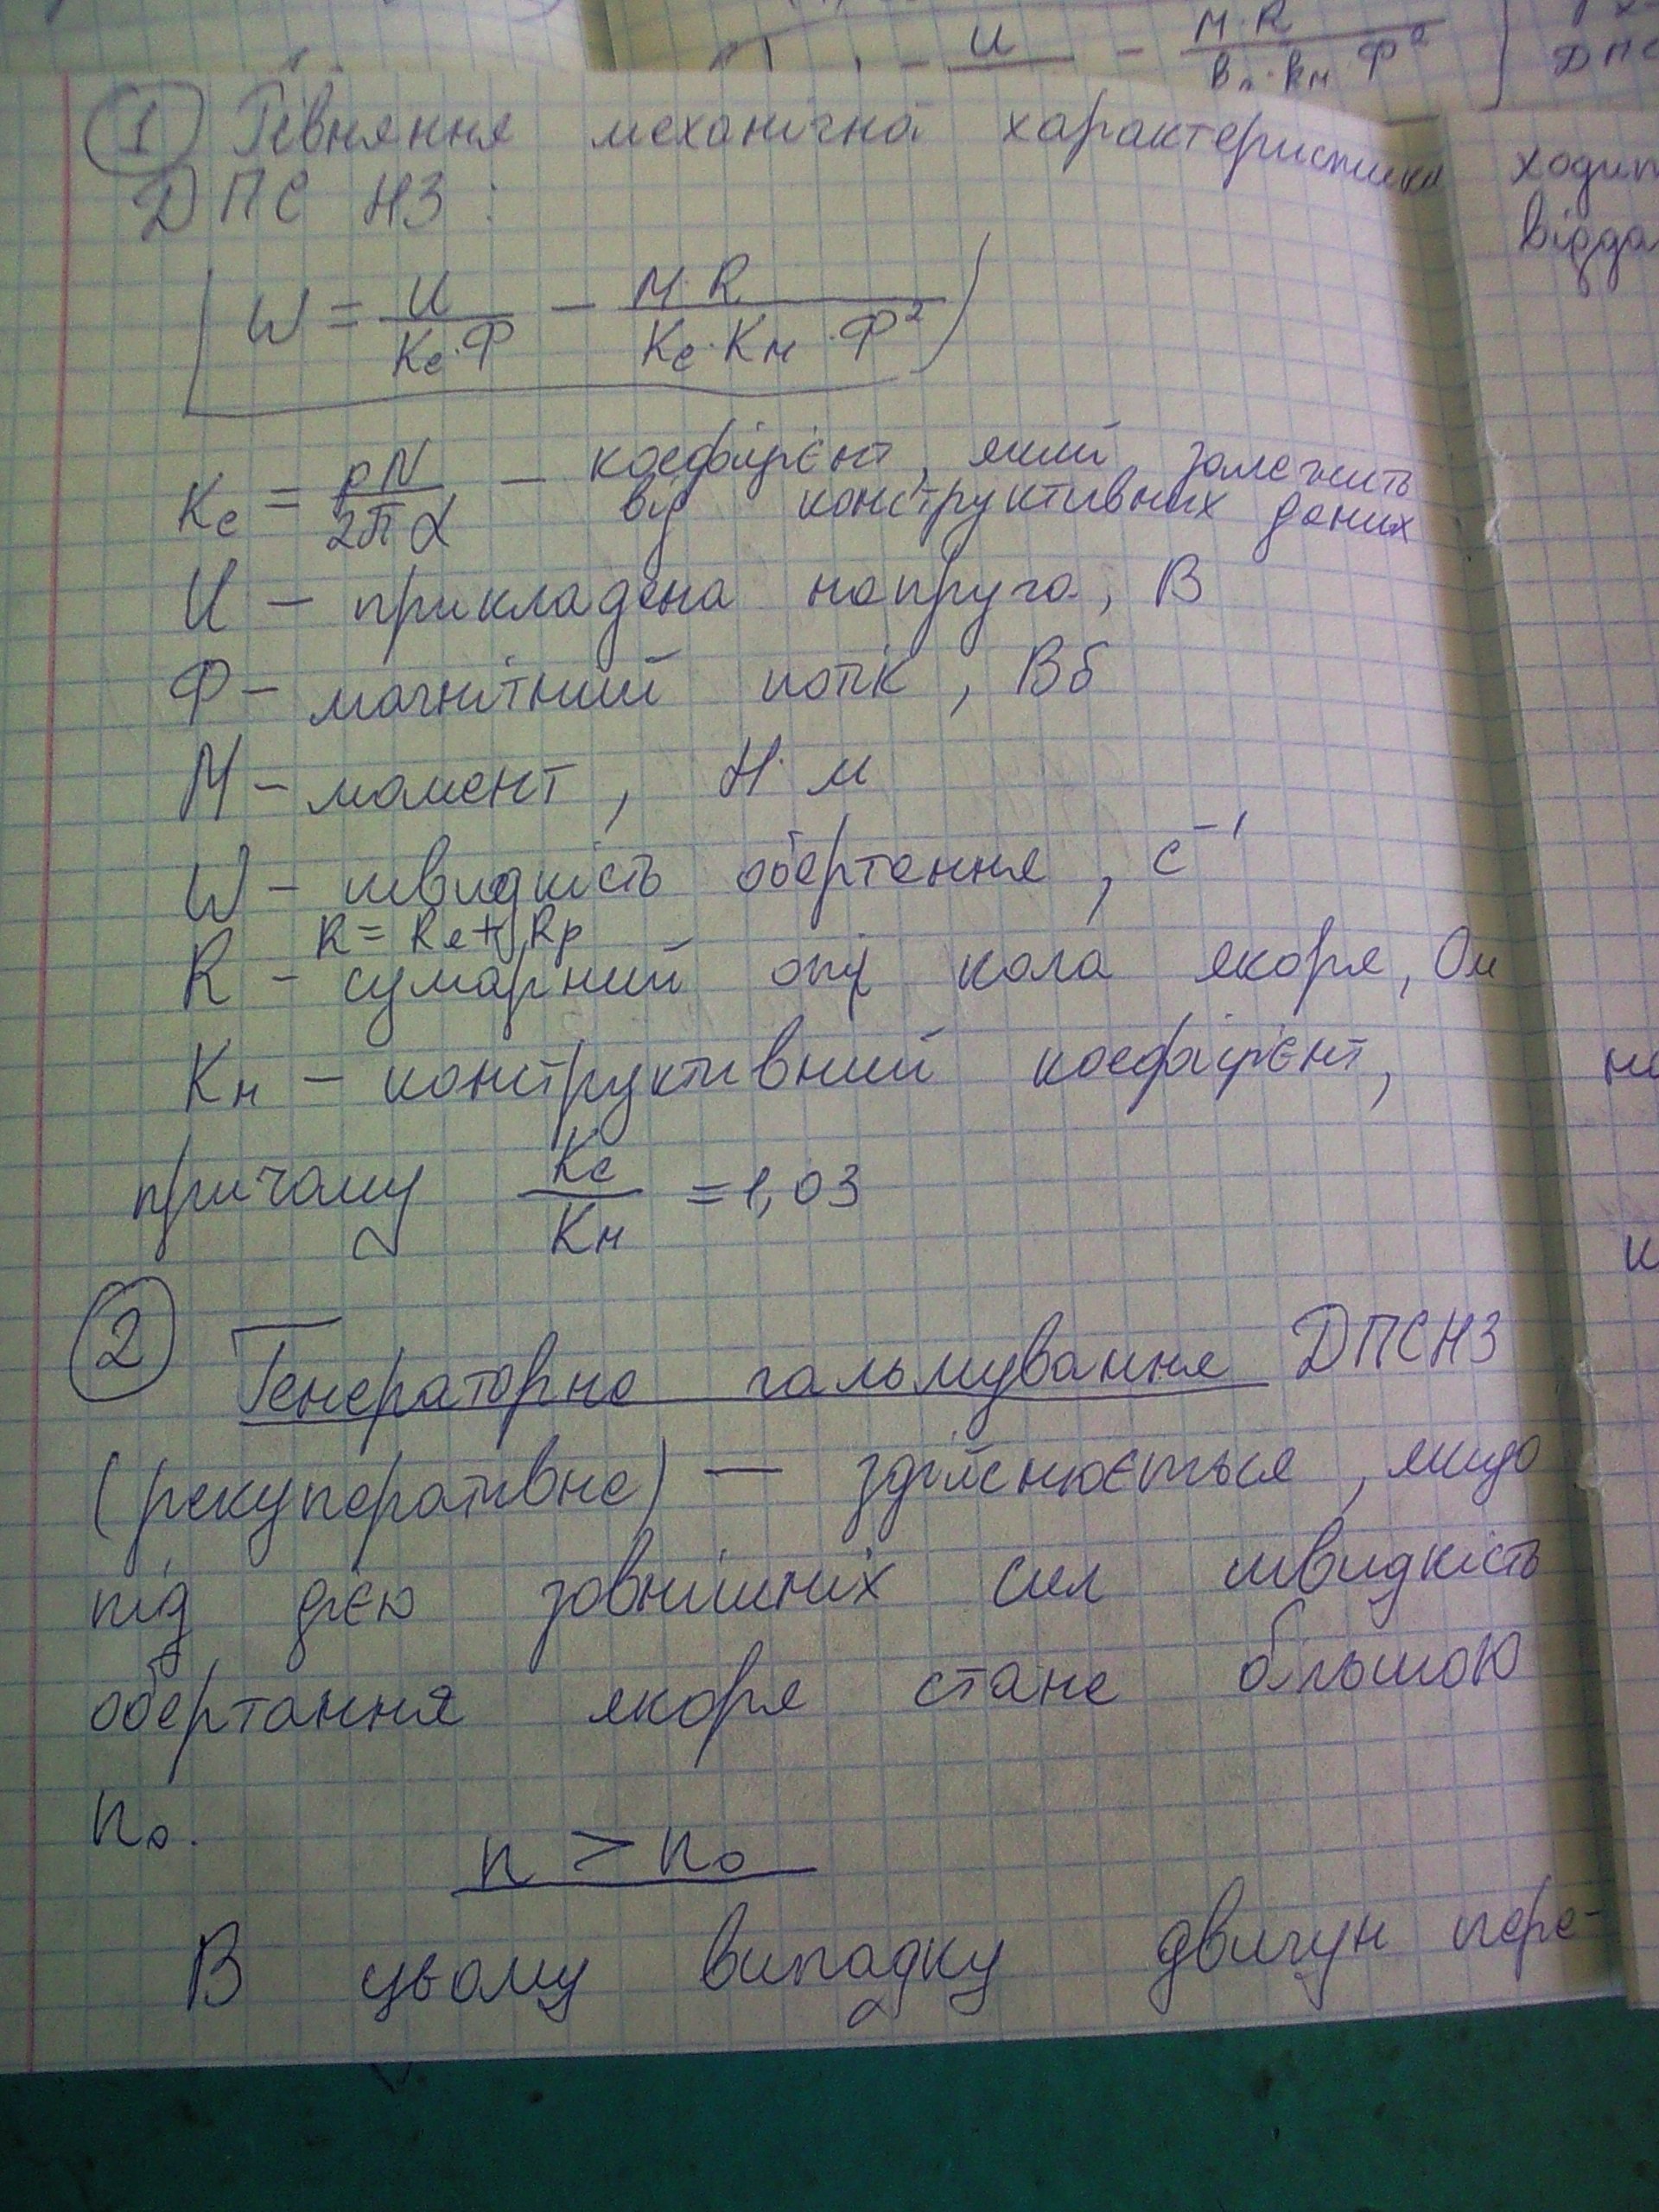 U / — M·R / Ф²
ДПС
① Рівняння механічна характеристики
ДПС НЗ:
W = U / Kе·Ф — M·R / Kе·Kм·Ф²
Kе = pN / 2πα — коефіцієнт, який залежить
від конструктивних даних
U — прикладена напруга, В
Ф — магнітний потік, Вб
M — момент, Н·м
W — швидкість обертання, с⁻¹
R = Rя + Rр
R — сумарний опір кола якоря, Ом
Kм — конструктивний коефіцієнт,
причому Kе / Kм = 1,03
② Генераторне гальмування ДПСНЗ
(рекуперативне) — здійснюється, якщо
під дією зовнішніх сил швидкість
обертання якоря стане більшою
n₀.
n > n₀
В цьому випадку двигун пере-